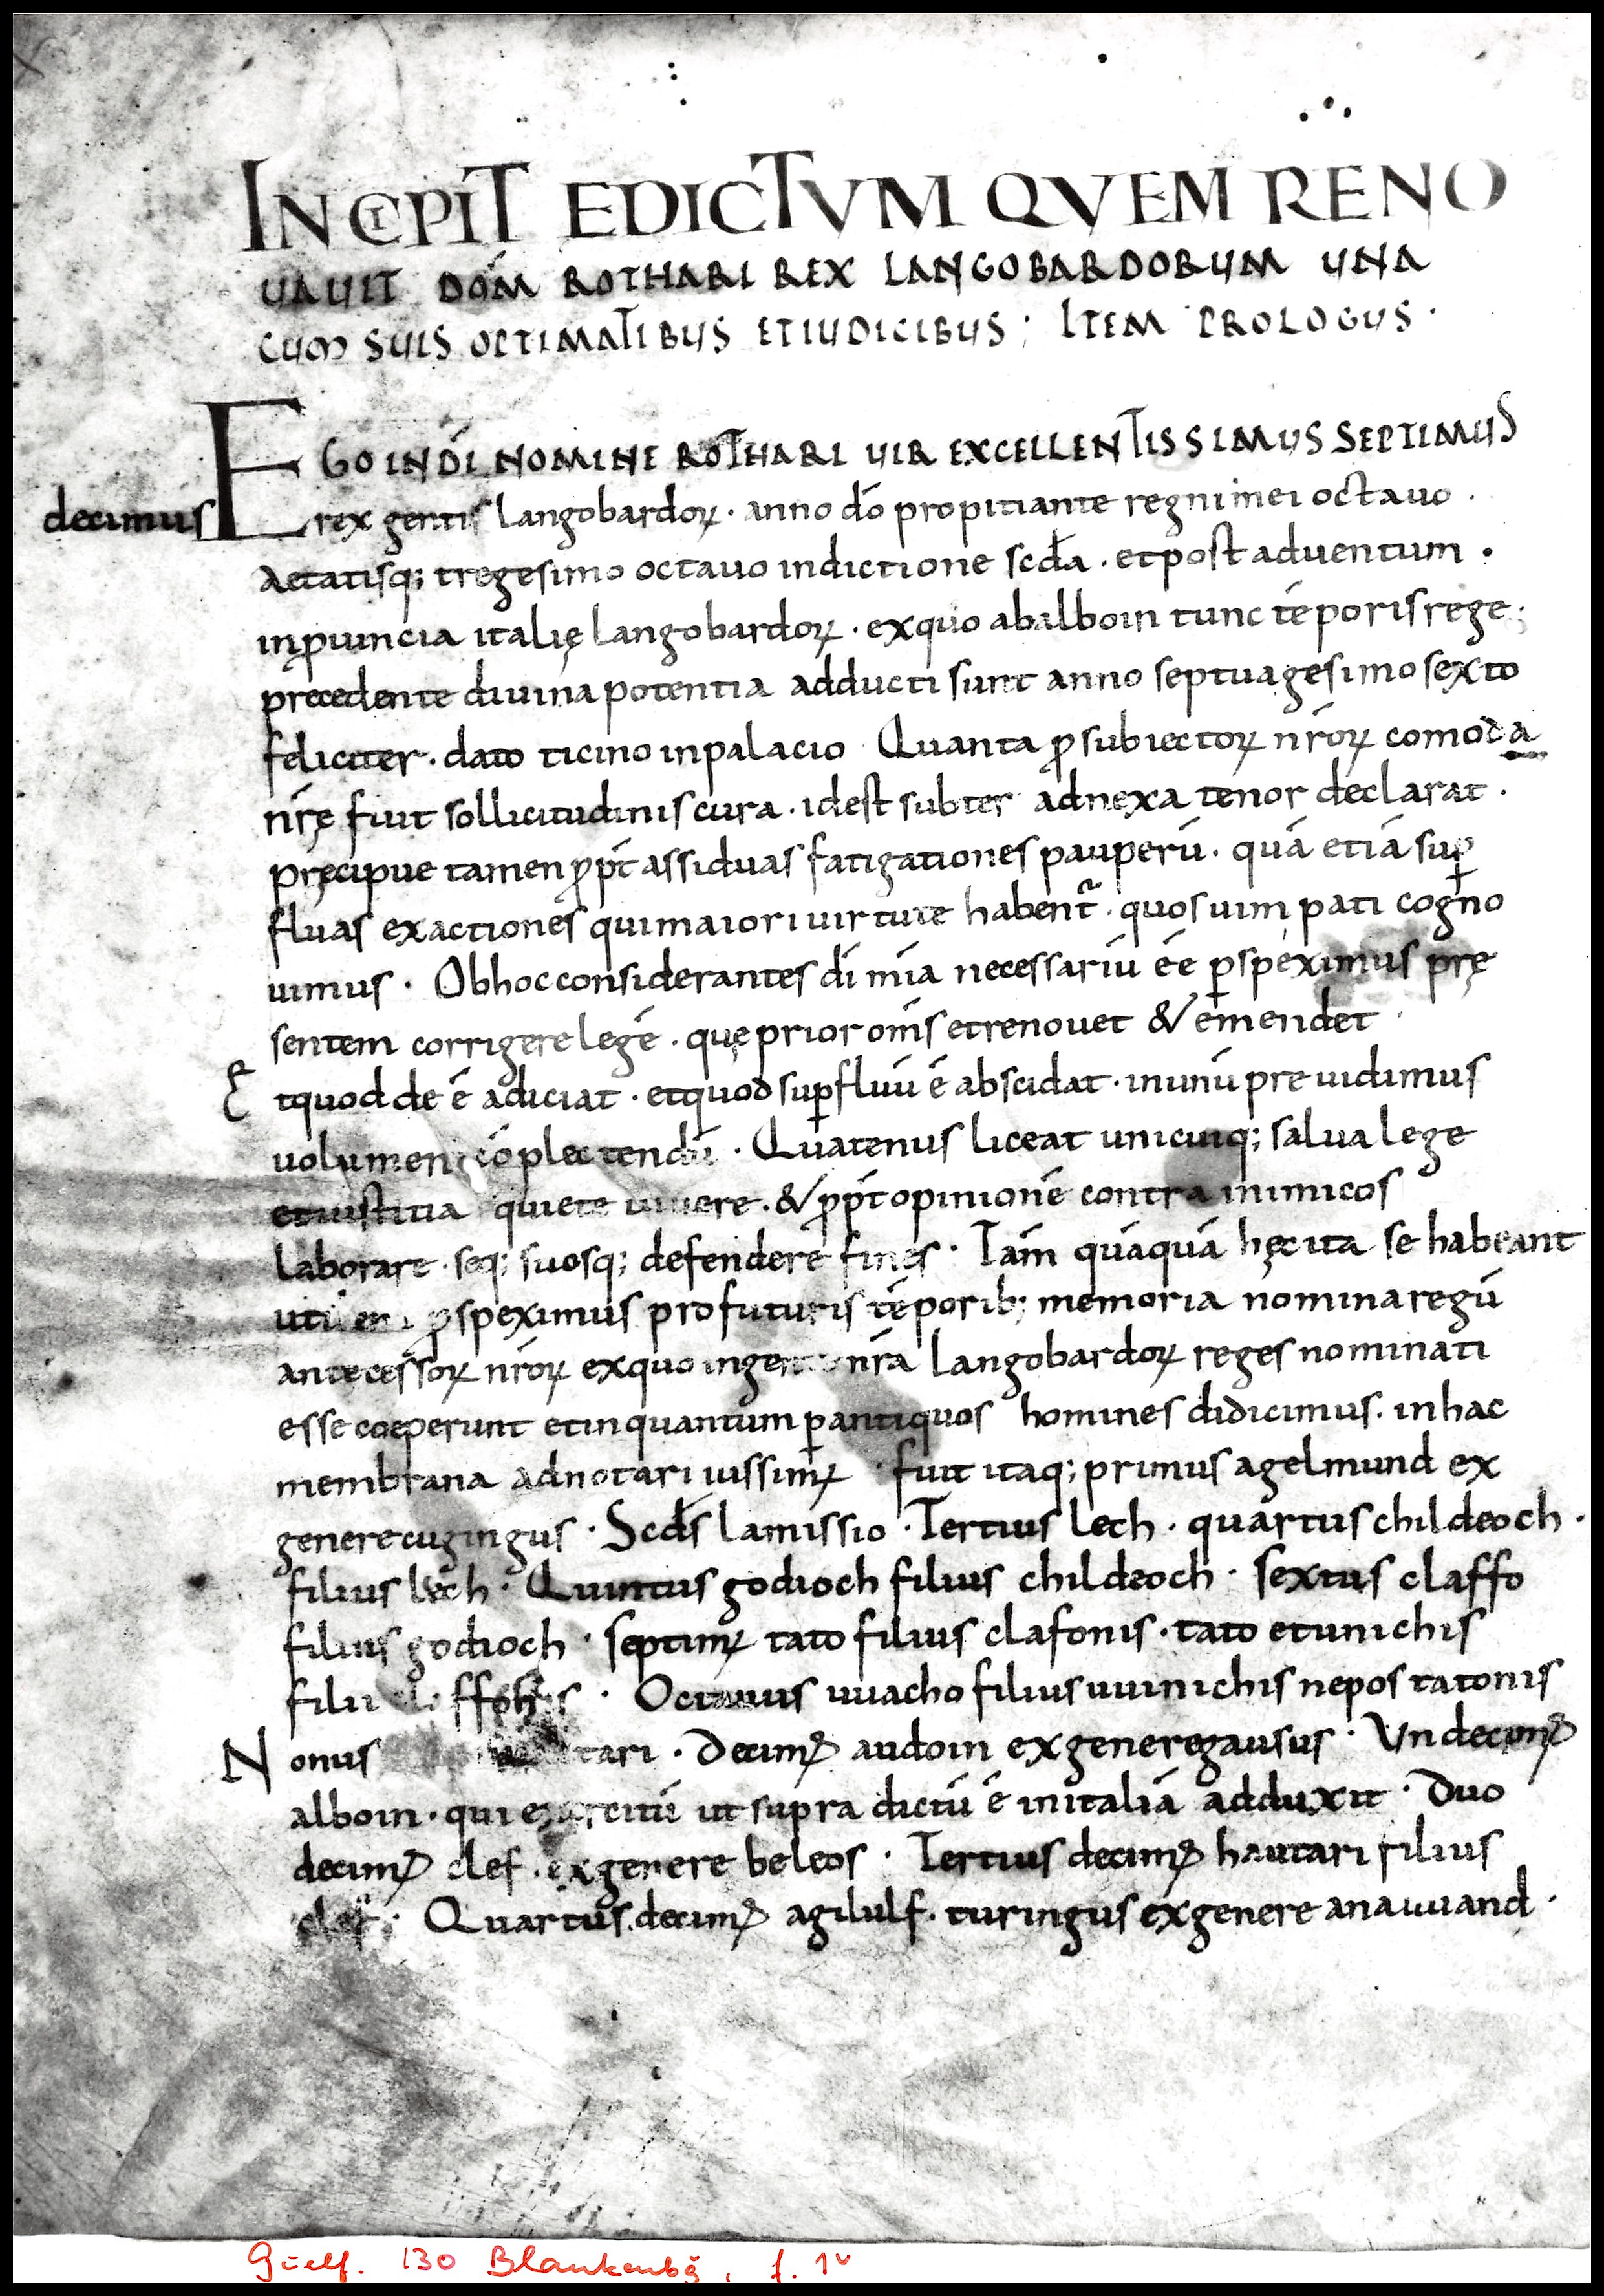 INCIPIT EDICTVM QVEM RENO
UAUIT DOM̄ ROTHARI REX LANGOBARDORUM UNA
CUM SUIS OPTIMATIBUS ET IUDICIBUS; ITEM PROLOGUS.
EGO IN DĪ NOMINE ROTHARI UIR EXCELLENTISSIMUS SEPTIMUS
decimus rex gentis langobardoꝝ. anno dō propitiante regni mei octauo.
Aetatisq; tregesimo octauo indictione scđa. et post aduentum.
in ꝓuincia italię langobardoꝝ. ex quo ab alboin tunc tēporis rege.
precedente diuina potentia adducti sunt anno septuagesimo sexto
feliciter. dato ticino in palacio Quanta ꝓ subiectoꝝ nr̄oꝝ comoda
nr̄ę fuit sollicitudinis cura. idest subter adnexa tenor declarat.
pręcipue tamen ꝓpt̄ assiduas fatigationes pauperū. quā etiā suꝑ
fluas exactiones qui maiori uirtute habent᷑. quos uim pati cogno
uimus. Ob hoc considerantes dī mīa necessariū ēē ꝑspeximus prę
sentem corrigere legē. quę prior om̄s et renouet & emendet
Et quod de ē adiciat. et quod suꝑfluū ē abscidat. in unū pre uidimus
uolumen cōplectendū. Quatenus liceat unicuiq; salua lege
et iustitia quiete uiuere. & ꝓpt̄ opinionē contra inimicos
laborare. seq; suosq; defendere fines. Tam̄ quāquā hęc ita se habeant
ꝑspeximus pro futuris tēporib; memoria nomina regū
antecessoꝝ nr̄oꝝ ex quo in nr̄a langobardoꝝ reges nominati
esse coeperunt et in quantum ꝑ antiquos homines didicimus. in hac
membrana adnotari iussimꝰ. fuit itaq; primus agelmund ex
genere cugingus. Scđs lamissio. Tertius lech. quartus childeoch.
filius lech. Quintus godioch filius childeoch. sextus claffo
filius godioch. septimꝰ tato filius clafonis. tato et unichis
filii. Octauus uuacho filius uuinichis nepos tatonis
Nonus tari. Decimꝰ audoin ex genere gausus. Vndecimꝰ
alboin. qui exercitū ut supra dictū ē in italiā adduxit. Duo
decimꝰ clef. ex genere beleos. Tertius decimꝰ hautari filius
clef; Quartus decimꝰ agilulf. turingus ex genere anauuand.
Guelf. 130 Blankenbg, f. 1v